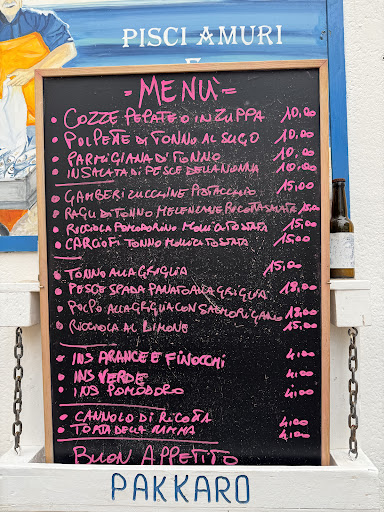 PISCI AMURI
E
= MENU' =
• COZZE PEPATE O IN ZUPPA 10,00
• POLPETTE DI TONNO AL SUGO 10,00
• PARMIGIANA DI TONNO 10,00
• INSALATA DI PESCE DELLA NONNA 10,00
• GAMBERI ZUCCHINE PISTACCHIO 15,00
• RAGU DI TONNO MELENZANE RICOTTA SALATA 15,00
• RICCIOLA POMODORINO MOLLICA TOSTATA 15,00
• CARCIOFI TONNO MOLLICA TOSTATA 15,00
• TONNO ALLA GRIGLIA 15,00
• PESCE SPADA PANATO ALLA GRIGLIA 18,00
• POLPO ALLA GRIGLIA CON SALMORIGANO 18,00
• RICCIOLA AL LIMONE 15,00
• INS ARANCE E FINOCCHI 4,00
• INS VERDE 4,00
• INS POMODORO 4,00
• CANNOLO DI RICOTTA 4,00
• TORTA DELLA MAMMA 4,00
BUON APPETITO
PAKKARO